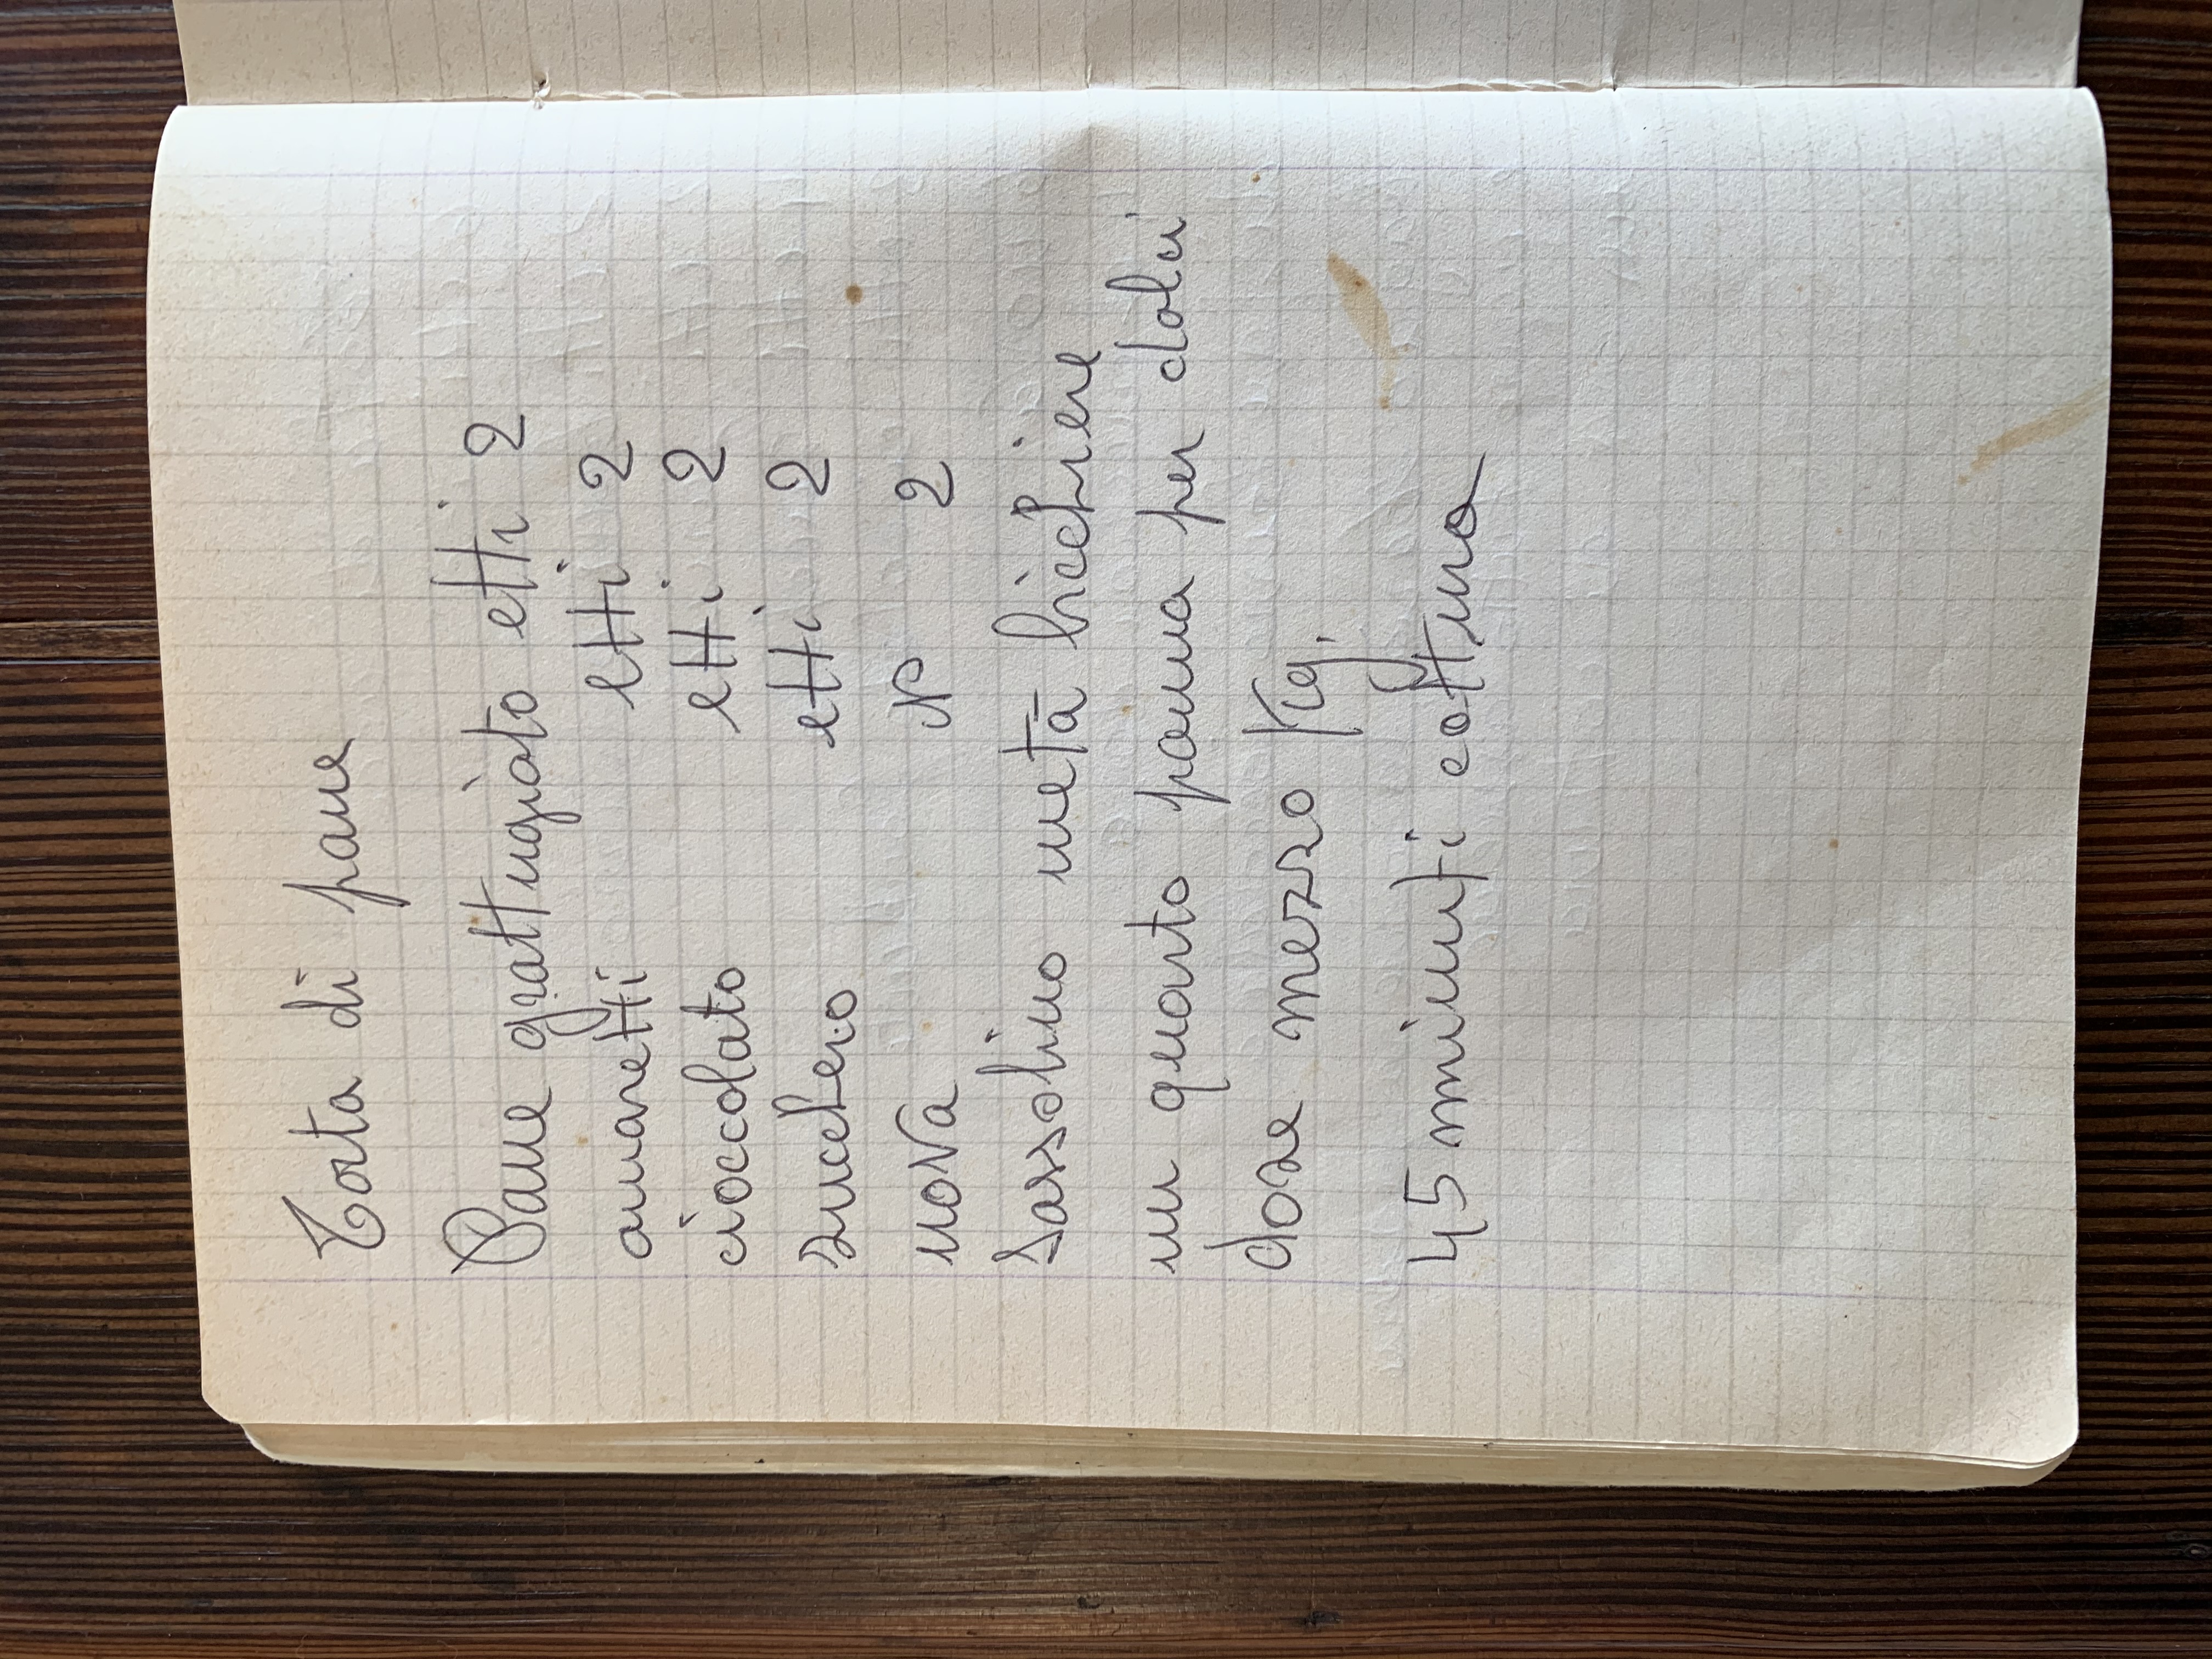 Torta di pane
Pane grattugiato etti 2
amaretti etti 2
cioccolato etti 2
zucchero etti 2
uova N° 2
Sassolino metà bicchiere
un quarto panna per dolci
dose mezzo Kg.
45 minuti cottura